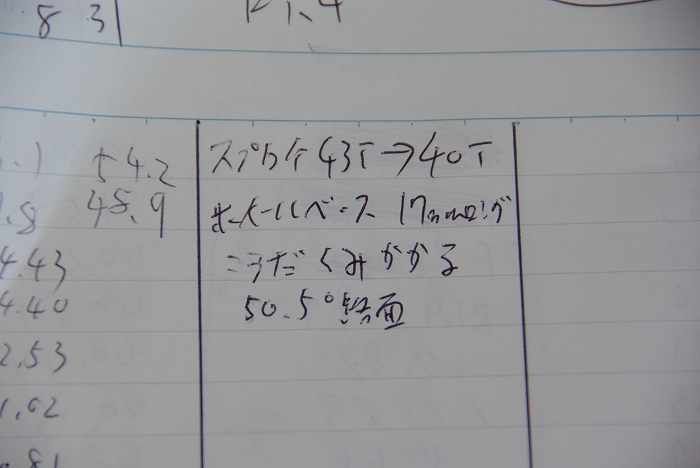 .83
5.1 54.2
スプロケ 43T→40T
.8 48.9
ホイールベース 17mmロング
4.43
こうだくみがかる
4.40
50.5°路面
2.53
1.02
.81